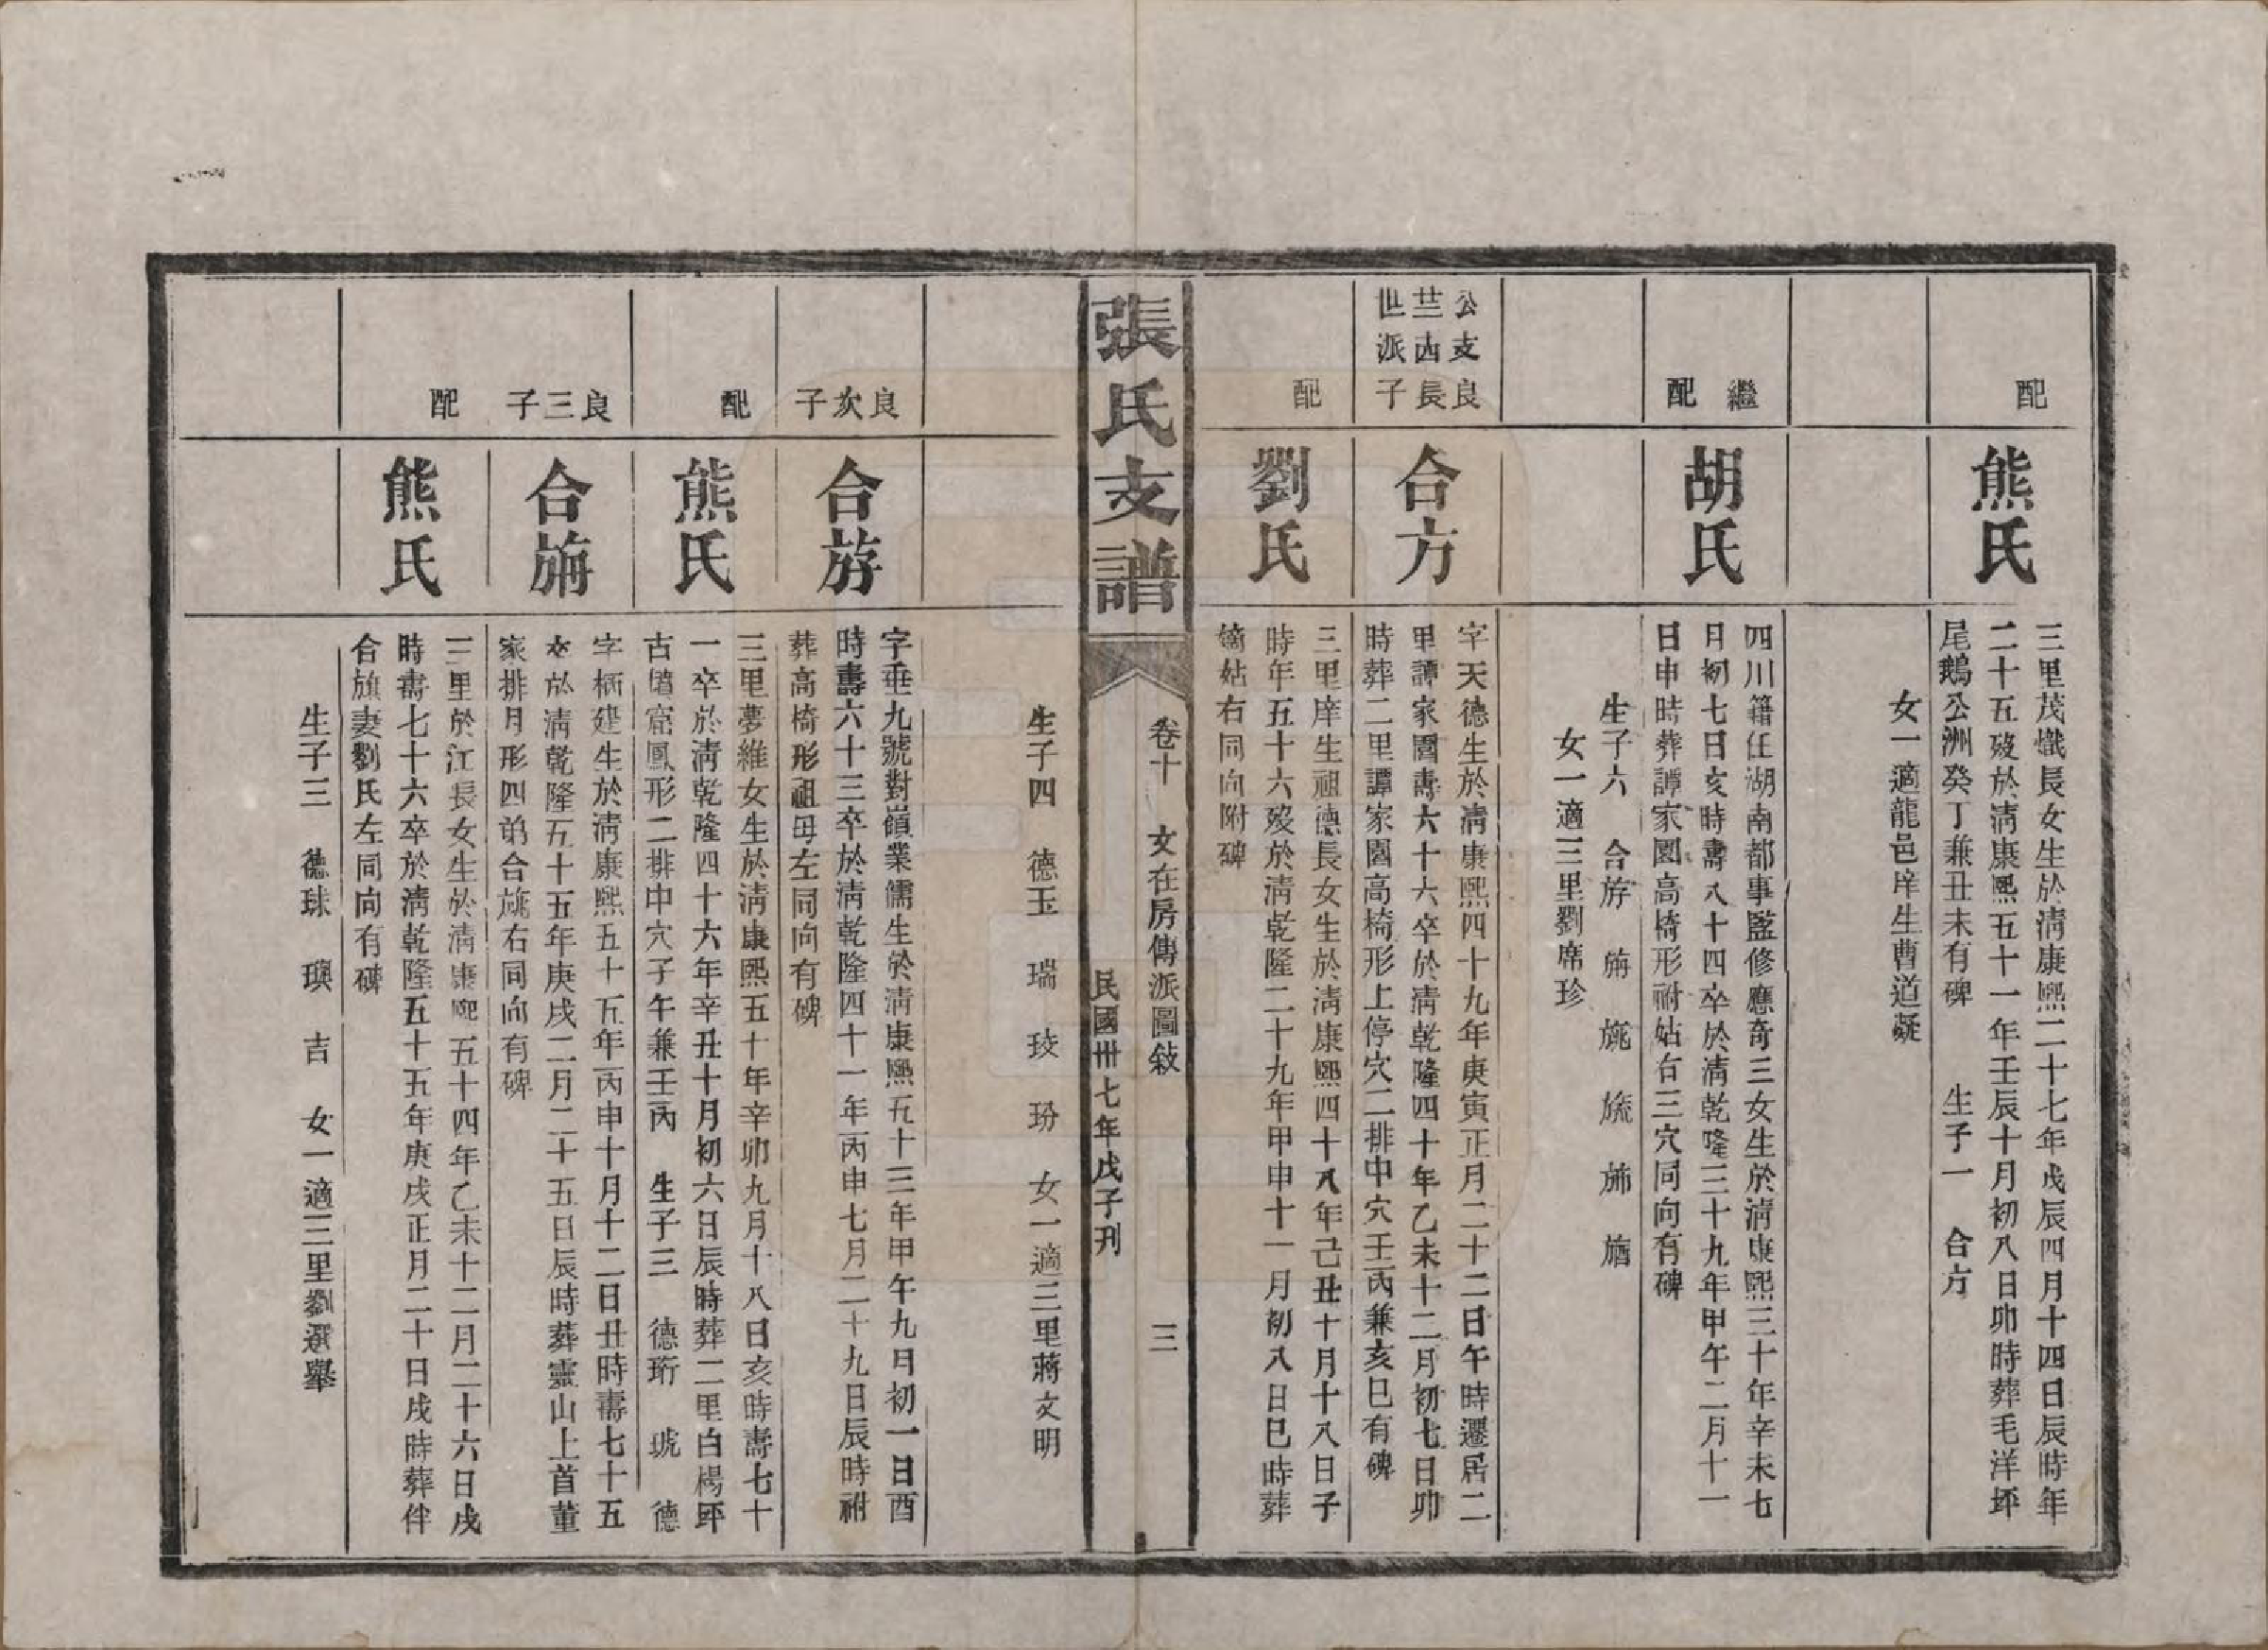 配
熊氏
三里茂熾長女生於清康熙二十七年戊辰四月十四日辰時年
二十五歿於清康熙五十一年壬辰十月初八日卯時葬毛洋坪
尾鵝公洲癸丁兼丑未有碑 生子一 合方
女一適龍邑庠生曹道凝
繼
配
胡氏
四川籍任湖南都事監修應奇三女生於清康熙三十年辛未七
月初七日亥時壽八十四卒於清乾隆三十九年甲午二月十一
日申時葬譚家園高椅形祔姑右三穴同向有碑
生子六 合斿 旃 旐 旒 旆
女一適三里劉席珍
公支良
三西長
世派子
合方
字天德生於清康熙四十九年庚寅正月二十二日午時遷居二
里譚家園壽六十六卒於清乾隆四十年乙未十二月初七日卯
時葬二里譚家園高椅形上停穴二排中穴壬丙兼亥巳有碑
配
劉氏
三里庠生祖德長女生於清康熙四十八年己丑十月十八日子
時年五十六歿於清乾隆二十九年甲申十一月初八日巳時葬
嫡姑右同向附碑
張氏支譜
卷十 文在房傳派圖敍 三
民國卅七年戊子刋
生子四 德玉 瑞 珓 玢 女一適三里蔣文明
良次子
合斿
字垂九號對嵿業儒生於清康熙五十三年甲午九月初一日酉
時壽六十三卒於清乾隆四十一年丙申七月二十九日辰時祔
葬高椅形祖母左同向有碑
配
熊氏
三里夢維女生於清康熙五十年辛卯九月十八日亥時壽七十
一卒於清乾隆四十六年辛丑十月初六日辰時葬二里白楊坪
古墻窩鳳形二排中穴子午兼壬丙 生子三 德珩 琥 德
良三子
合旃
字栖建生於清康熙五十五年丙申十月十二日丑時壽七十五
卒於清乾隆五十五年庚戌二月二十五日辰時葬靈山上首董
家排月形四弟合旐右同向有碑
配
熊氏
三里於江長女生於清康熙五十四年乙未十二月二十六日戌
時壽七十六卒於清乾隆五十五年庚戌正月二十日戌時葬伴
合旗妻劉氏左同向有碑
生子三 德珠 璵 吉 女一適三里劉選舉